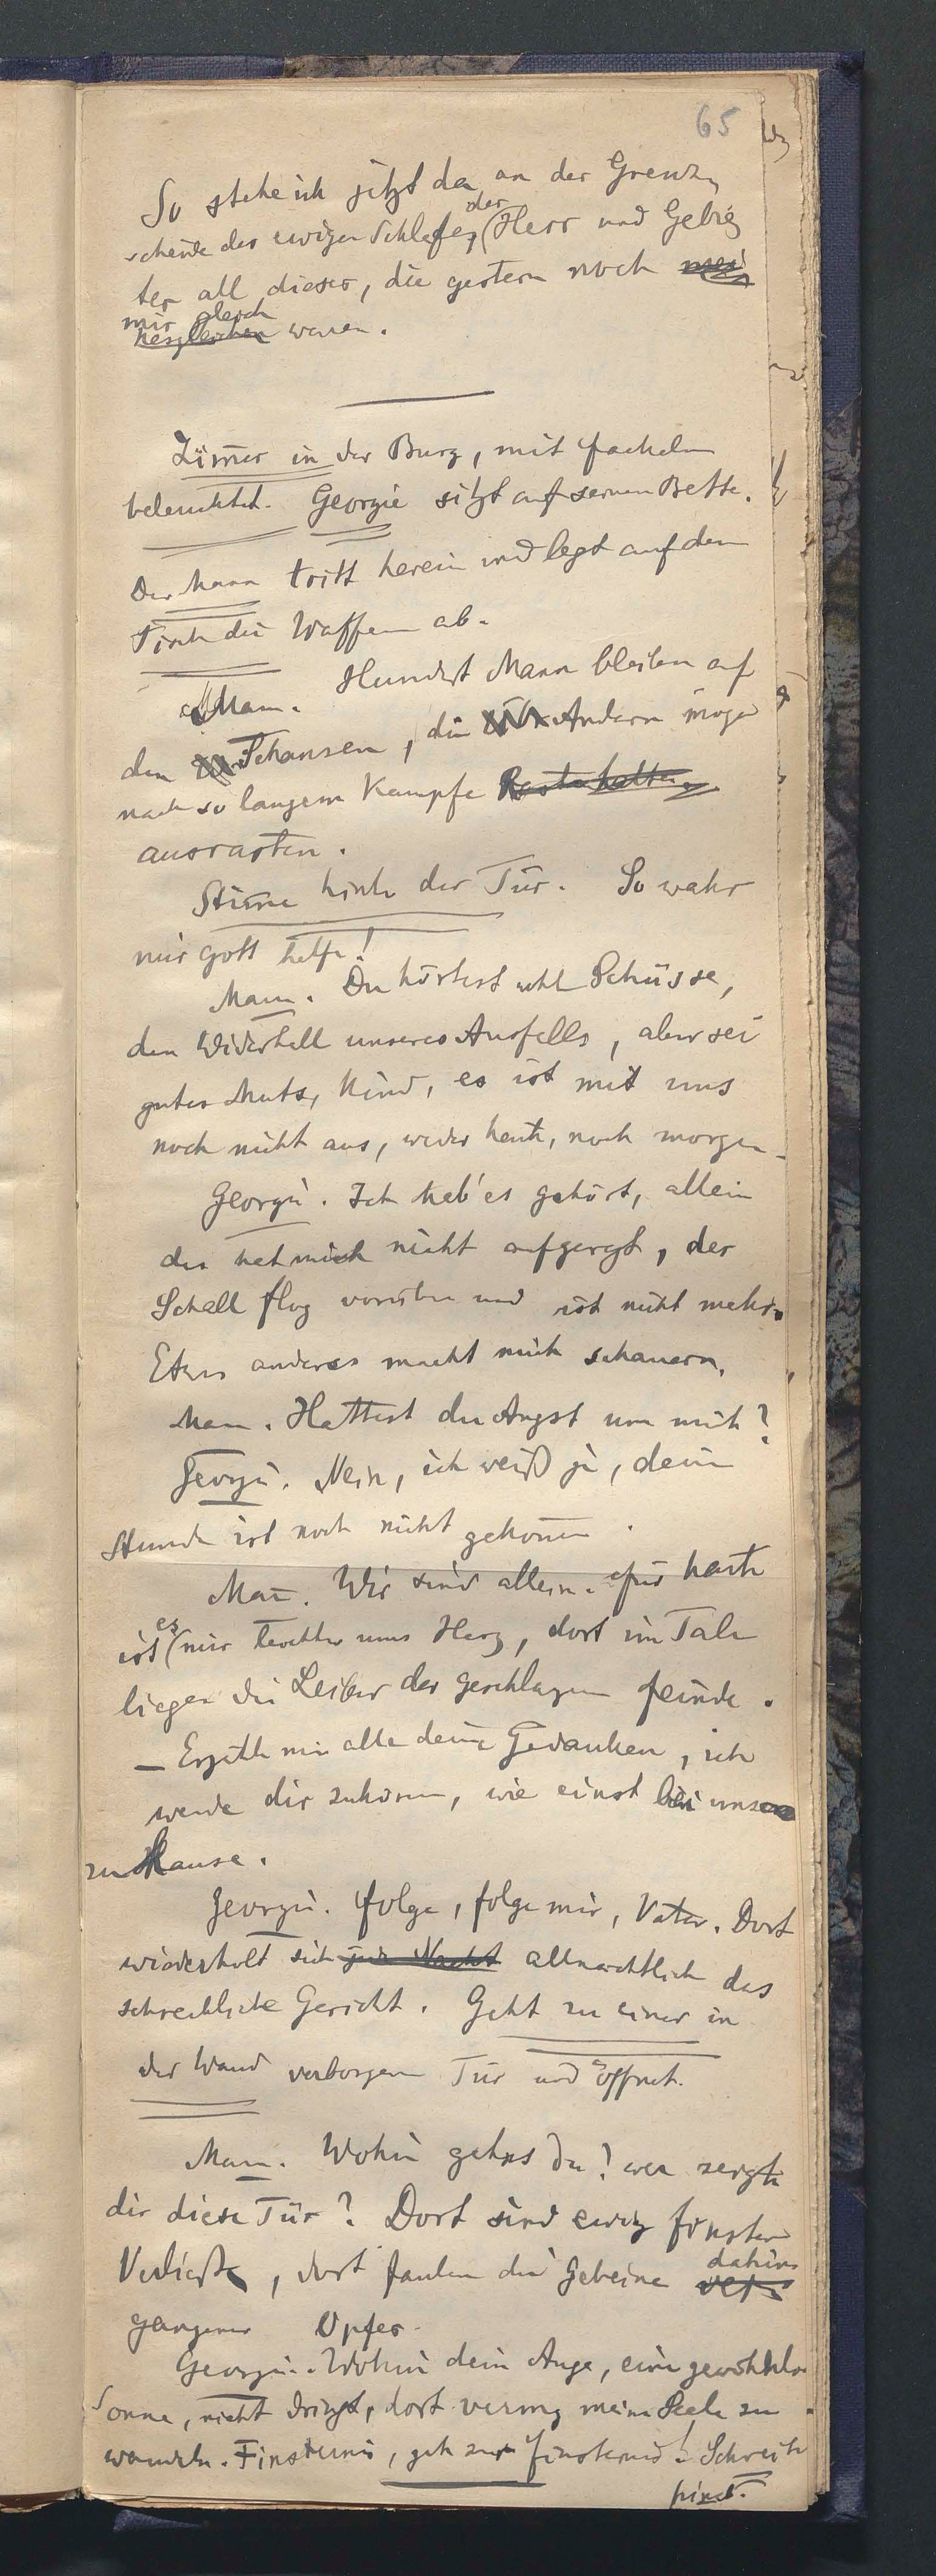 65
So stehe ich jetzt da an der Grenz
scheide des ewigen Schlafes, der Herr und Gebie
ter all dieser, die gestern noch mei
mir gleich
nesgleichen waren.
Zimmer in der Burg, mit Fackeln
beleuchtet. Georgie sitzt auf seinem Bette.
Der Mann tritt herein und legt auf den
Tisch die Waffen ab.
Mann. Hundert Mann bleiben auf
den Schansen, die Andern mögen
nach so langem Kampfe Rast halten
ausrasten.
Stimme hinter der Tür. So wahr
mir Gott helfe!
Mann. Du hörtest wohl Schüsse,
den Widerhall unseres Ausfalls, aber sei
guten Muts, Kind, es ist mit uns
noch nicht aus, weder heute, noch morgen.
Georgie. Ich hab' es gehört, allein
das hat mich nicht aufgeregt, der
Schall flog vorüber und ist nicht mehr.
Etwas anderes macht mich schauern.
Mann. Hattest du Angst um mich?
Georgie. Nein, ich weiß ja, deine
Stunde ist noch nicht gekommen.
Mann. Wir sind allein. Für heute
ist es mir leichter ums Herz, dort im Tale
liegen die Leiber der geschlagenen Feinde.
— Erzähle mir alle deine Gedanken, ich
werde dir zuhören, wie einst bei uns
zu Hause.
Georgie. Folge, folge mir, Vater. Dort
wiederholt sich jede Nacht allnächtlich das
schreckliche Gericht. Geht zu einer in
der Wand verborgenen Tür und öffnet.
Mann. Wohin gehst du! wer zeigte
dir diese Tür? Dort sind ewig finstere
Verließe, dort faulen die Gebeine dahin
gegangener Opfer.
Georgie. Wohin dein Auge, eine gewöhnliche
Sonne, nicht dringt, dort vermag meine Seele zu
wandeln. Finsternis, geh zur Finsternis! Schreitet
hinab.